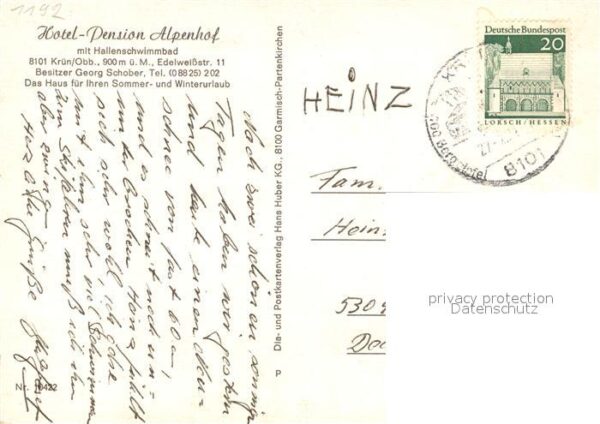 1192
Hotel-Pension Alpenhof
mit Hallenschwimmbad
8101 Krün/Obb., 900 m ü. M., Edelweißstr. 11
Besitzer Georg Schober, Tel. (08825) 202
Das Haus für Ihren Sommer- und Winterurlaub
Nach zwei schönen, sonnigen
Tagen haben wir gestern
und heute einen
schnee von fast 60
und es schneit noch un-
unterbrochen. Heinz fühlt
sich sehr wohl, ich gehe
mit ihm sehr viel schwimmen
zum Skifahren muß ich ihn
aber zwingen
Herzliche Grüße
Nr. 10422
Dia- und Postkartenverlag Hans Huber KG., 8100 Garmisch-Partenkirchen
P
HEINZ
Deutsche Bundespost
20
LORSCH / HESSEN
8101
Fam.
Hein
530
privacy protection
Datenschutz